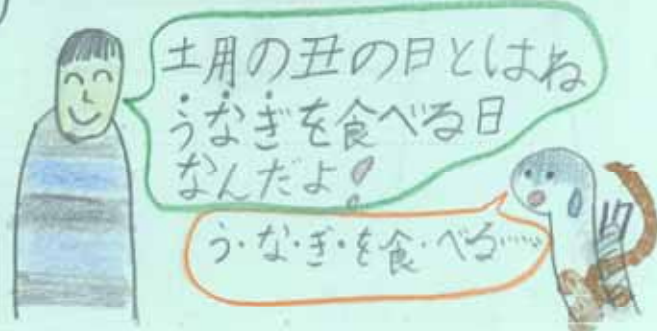 土用の丑の日とはね
うなぎを食べる日
なんだよ!
う・な・ぎ・を食・べる……